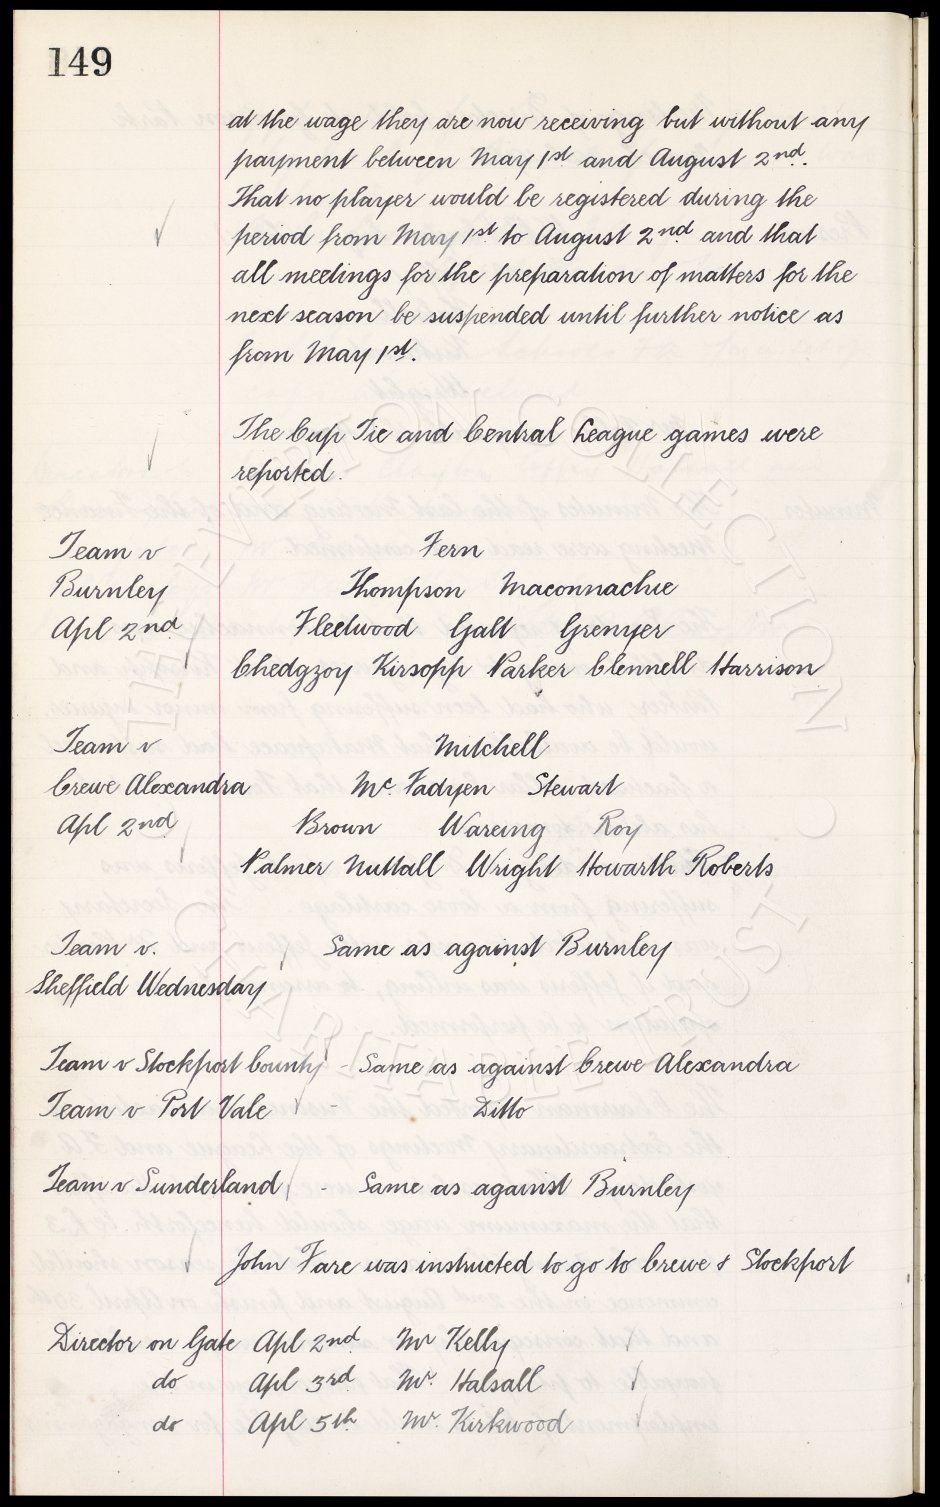 149
at the wage they are now receiving but without any
payment between May 1st and August 2nd.
That no player would be registered during the
period from May 1st to August 2nd and that
all meetings for the preparation of matters for the
next season be suspended until further notice as
from May 1st.
The Cup Tie and Central League games were
reported.
Team v Fern
Burnley Thompson Maconnachie
Apl 2nd Fleetwood Galt Grenyer
Chedgzoy Kirsopp Parker Clennell Harrison
Team v Mitchell
Crewe Alexandra Mc. Fadyen Stewart
Apl 2nd Brown Wareing Roy
Palmer Nuttall Wright Howarth Roberts
Team v. Same as against Burnley
Sheffield Wednesday
Team v Stockport County - Same as against Crewe Alexandra
Team v Port Vale - Ditto
Team v Sunderland - Same as against Burnley
John Fare was instructed to go to Crewe & Stockport
Director on Gate Apl 2nd Mr Kelly
do Apl 3rd Mr. Halsall
do Apl 5th Mr. Kirkwood
THE EVERTON COLLECTION CHARITABLE TRUST